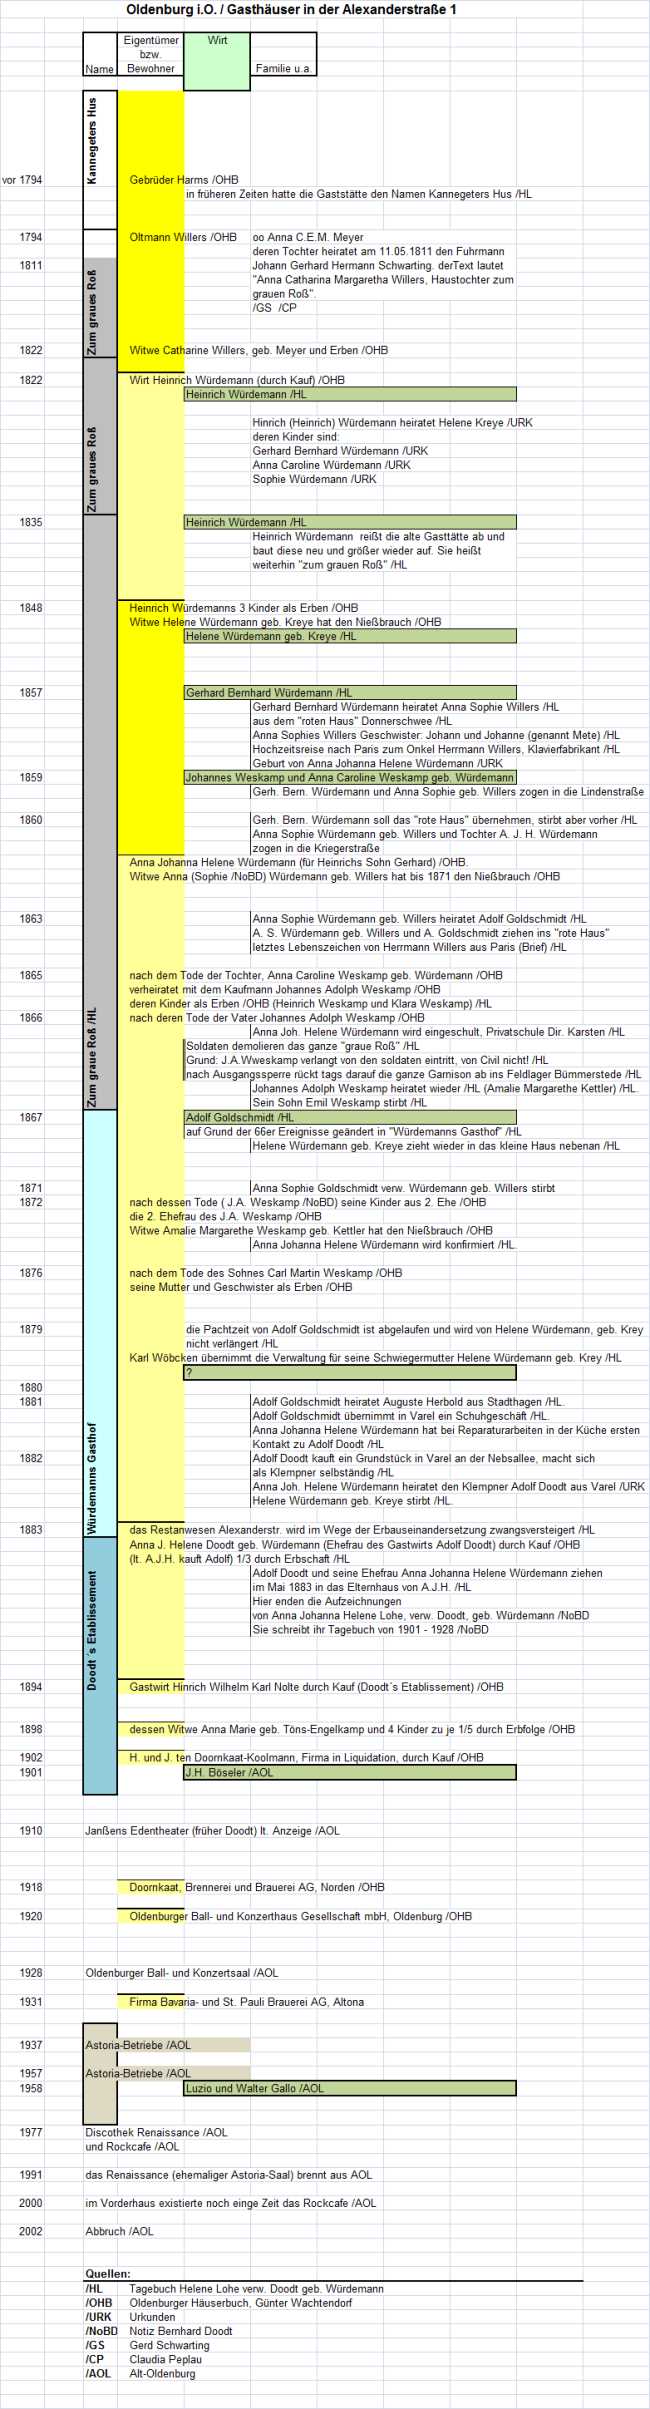 Oldenburg i.O. / Gasthäuser in der Alexanderstraße 1
Name
Eigentümer
bzw.
Bewohner
Wirt
Familie u.a.
Kannegeters Hus
vor 1794 Gebrüder Harms /OHB
in früheren Zeiten hatte die Gaststätte den Namen Kannegeters Hus /HL
1794 Oltmann Willers /OHB oo Anna C.E.M. Meyer
deren Tochter heiratet am 11.05.1811 den Fuhrmann
1811 Johann Gerhard Hermann Schwarting. derText lautet
"Anna Catharina Margaretha Willers, Haustochter zum
grauen Roß".
/GS /CP
Zum graues Roß
1822 Witwe Catharine Willers, geb. Meyer und Erben /OHB
1822 Wirt Heinrich Würdemann (durch Kauf) /OHB
Heinrich Würdemann /HL
Zum graues Roß
Hinrich (Heinrich) Würdemann heiratet Helene Kreye /URK
deren Kinder sind:
Gerhard Bernhard Würdemann /URK
Anna Caroline Würdemann /URK
Sophie Würdemann /URK
1835 Heinrich Würdemann /HL
Heinrich Würdemann reißt die alte Gasttätte ab und
baut diese neu und größer wieder auf. Sie heißt
weiterhin "zum grauen Roß" /HL
1848 Heinrich Würdemanns 3 Kinder als Erben /OHB
Witwe Helene Würdemann geb. Kreye hat den Nießbrauch /OHB
Helene Würdemann geb. Kreye /HL
1857 Gerhard Bernhard Würdemann /HL
Gerhard Bernhard Würdemann heiratet Anna Sophie Willers /HL
aus dem "roten Haus" Donnerschwee /HL
Anna Sophies Willers Geschwister: Johann und Johanne (genannt Mete) /HL
Hochzeitsreise nach Paris zum Onkel Herrmann Willers, Klavierfabrikant /HL
Geburt von Anna Johanna Helene Würdemann /URK
1859 Johannes Weskamp und Anna Caroline Weskamp geb. Würdemann
Gerh. Bern. Würdemann und Anna Sophie geb. Willers zogen in die Lindenstraße
1860 Gerh. Bern. Würdemann soll das "rote Haus" übernehmen, stirbt aber vorher /HL
Anna Sophie Würdemann geb. Willers und Tochter A. J. H. Würdemann
zogen in die Kriegerstraße
Anna Johanna Helene Würdemann (für Heinrichs Sohn Gerhard) /OHB.
Witwe Anna (Sophie /NoBD) Würdemann geb. Willers hat bis 1871 den Nießbrauch /OHB
1863 Anna Sophie Würdemann geb. Willers heiratet Adolf Goldschmidt /HL
A. S. Würdemann geb. Willers und A. Goldschmidt ziehen ins "rote Haus"
letztes Lebenszeichen von Herrmann Willers aus Paris (Brief) /HL
1865 nach dem Tode der Tochter, Anna Caroline Weskamp geb. Würdemann /OHB
verheiratet mit dem Kaufmann Johannes Adolph Weskamp /OHB
deren Kinder als Erben /OHB (Heinrich Weskamp und Klara Weskamp) /HL
1866 nach deren Tode der Vater Johannes Adolph Weskamp /OHB
Anna Joh. Helene Würdemann wird eingeschult, Privatschule Dir. Karsten /HL
Soldaten demolieren das ganze "graue Roß" /HL
Grund: J.A.Wweskamp verlangt von den soldaten eintritt, von Civil nicht! /HL
nach Ausgangssperre rückt tags darauf die ganze Garnison ab ins Feldlager Bümmerstede /HL
Johannes Adolph Weskamp heiratet wieder /HL (Amalie Margarethe Kettler) /HL.
Sein Sohn Emil Weskamp stirbt /HL
Zum graue Roß /HL
1867 Adolf Goldschmidt /HL
auf Grund der 66er Ereignisse geändert in "Würdemanns Gasthof" /HL
Helene Würdemann geb. Kreye zieht wieder in das kleine Haus nebenan /HL
1871 Anna Sophie Goldschmidt verw. Würdemann geb. Willers stirbt
1872 nach dessen Tode ( J.A. Weskamp /NoBD) seine Kinder aus 2. Ehe /OHB
die 2. Ehefrau des J.A. Weskamp /OHB
Witwe Amalie Margarethe Weskamp geb. Kettler hat den Nießbrauch /OHB
Anna Johanna Helene Würdemann wird konfirmiert /HL.
1876 nach dem Tode des Sohnes Carl Martin Weskamp /OHB
seine Mutter und Geschwister als Erben /OHB
1879 die Pachtzeit von Adolf Goldschmidt ist abgelaufen und wird von Helene Würdemann, geb. Krey
nicht verlängert /HL
Karl Wöbcken übernimmt die Verwaltung für seine Schwiegermutter Helene Würdemann geb. Krey /HL
?
1880
1881 Adolf Goldschmidt heiratet Auguste Herbold aus Stadthagen /HL.
Adolf Goldschmidt übernimmt in Varel ein Schuhgeschäft /HL.
Anna Johanna Helene Würdemann hat bei Reparaturarbeiten in der Küche ersten
Kontakt zu Adolf Doodt /HL
1882 Adolf Doodt kauft ein Grundstück in Varel an der Nebsallee, macht sich
als Klempner selbständig /HL
Anna Joh. Helene Würdemann heiratet den Klempner Adolf Doodt aus Varel /URK
Helene Würdemann geb. Kreye stirbt /HL.
Würdemanns Gasthof
1883 das Restanwesen Alexanderstr. wird im Wege der Erbauseinandersetzung zwangsversteigert /HL
Anna J. Helene Doodt geb. Würdemann (Ehefrau des Gastwirts Adolf Doodt) durch Kauf /OHB
(lt. A.J.H. kauft Adolf) 1/3 durch Erbschaft /HL
Adolf Doodt und seine Ehefrau Anna Johanna Helene Würdemann ziehen
im Mai 1883 in das Elternhaus von A.J.H. /HL
Hier enden die Aufzeichnungen
von Anna Johanna Helene Lohe, verw. Doodt, geb. Würdemann /NoBD
Sie schreibt ihr Tagebuch von 1901 - 1928 /NoBD
Doodt´s Etablissement
1894 Gastwirt Hinrich Wilhelm Karl Nolte durch Kauf (Doodt´s Etablissement) /OHB
1898 dessen Witwe Anna Marie geb. Töns-Engelkamp und 4 Kinder zu je 1/5 durch Erbfolge /OHB
1902 H. und J. ten Doornkaat-Koolmann, Firma in Liquidation, durch Kauf /OHB
1901 J.H. Böseler /AOL
1910 Janßens Edentheater (früher Doodt) lt. Anzeige /AOL
1918 Doornkaat, Brennerei und Brauerei AG, Norden /OHB
1920 Oldenburger Ball- und Konzerthaus Gesellschaft mbH, Oldenburg /OHB
1928 Oldenburger Ball- und Konzertsaal /AOL
1931 Firma Bavaria- und St. Pauli Brauerei AG, Altona
1937 Astoria-Betriebe /AOL
1957 Astoria-Betriebe /AOL
1958 Luzio und Walter Gallo /AOL
1977 Discothek Renaissance /AOL
und Rockcafe /AOL
1991 das Renaissance (ehemaliger Astoria-Saal) brennt aus AOL
2000 im Vorderhaus existierte noch einge Zeit das Rockcafe /AOL
2002 Abbruch /AOL
Quellen:
/HL Tagebuch Helene Lohe verw. Doodt geb. Würdemann
/OHB Oldenburger Häuserbuch, Günter Wachtendorf
/URK Urkunden
/NoBD Notiz Bernhard Doodt
/GS Gerd Schwarting
/CP Claudia Peplau
/AOL Alt-Oldenburg